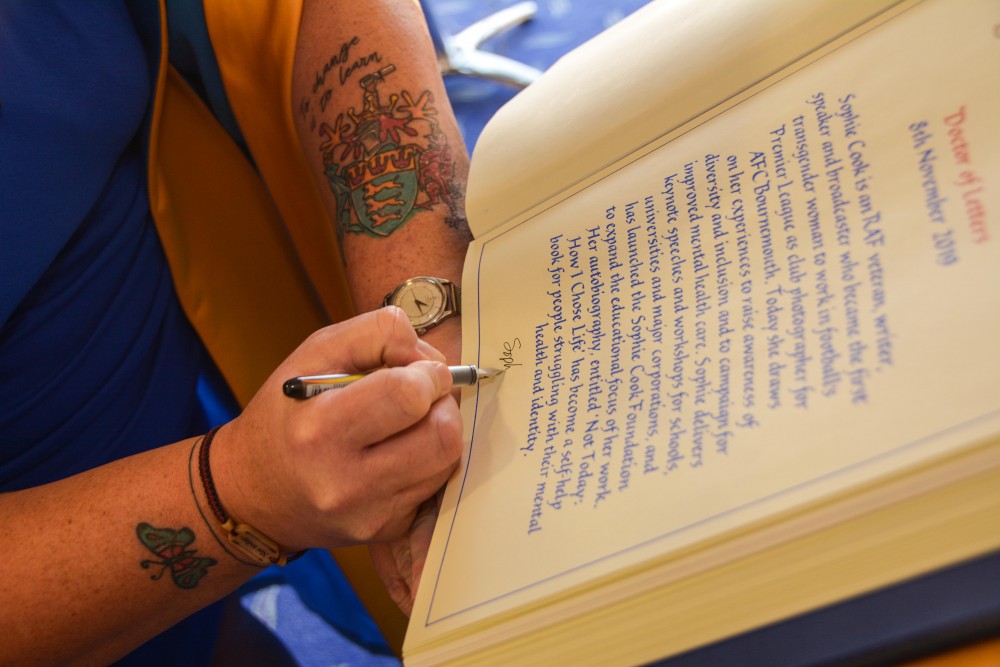 to change
is to learn
Doctor of Letters
8th November 2019
Sophie Cook is an RAF veteran, writer,
speaker and broadcaster who became the first
transgender woman to work in football's
Premier League as club photographer for
AFC Bournemouth. Today she draws
on her experiences to raise awareness of
diversity and inclusion and to campaign for
improved mental health care. Sophie delivers
keynote speeches and workshops for schools,
universities and major corporations, and
has launched the Sophie Cook Foundation
to expand the educational focus of her work.
Her autobiography, entitled 'Not Today:
How I Chose Life' has become a self-help
book for people struggling with their mental
health and identity.
Soph